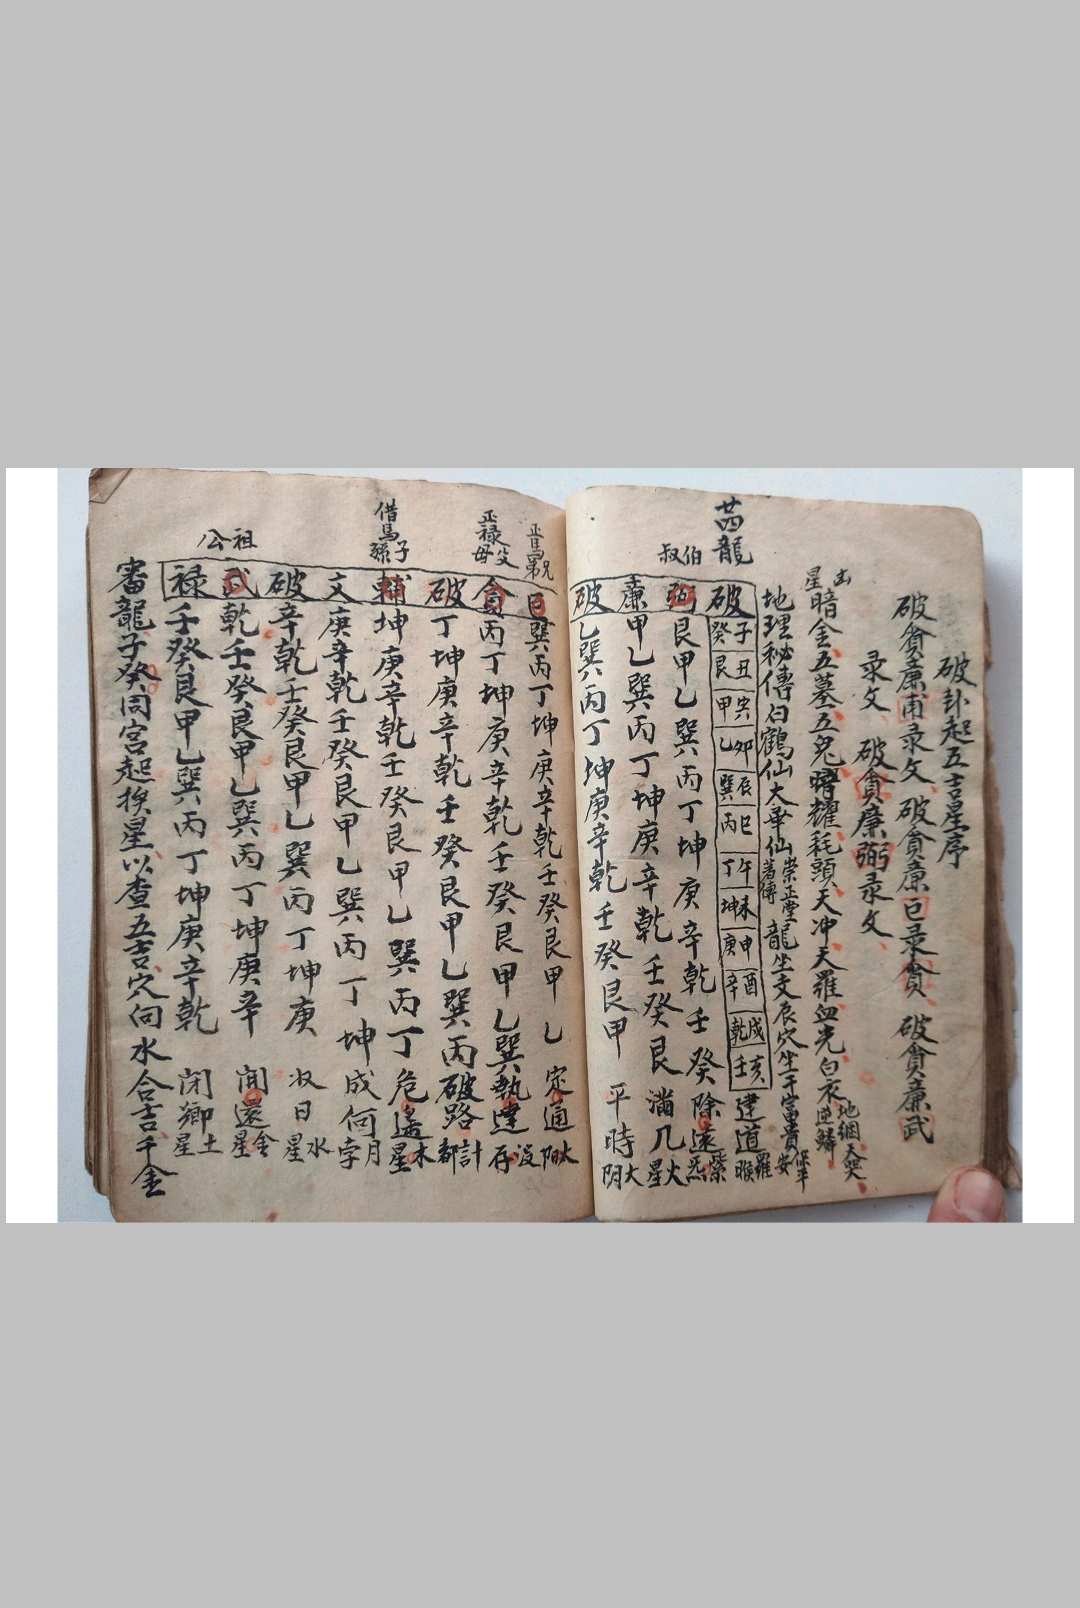 破卦起五吉星序
破貪廉甫录文、破貪廉巨录貪、破貪廉武
录文、破貪廉弼录文、
出
星暗金五墓五鬼曜耀耗頭天冲天羅血光白衣
逆鱗
地網天哭
地理秘傳白鶴仙大華仙
崇正堂
著傳
龍坐支辰穴坐干富貴安
保平
廿四龍
破
子丑寅卯辰巳午未申酉戌亥
癸艮甲乙巽丙丁坤庚辛乾壬
建道
羅睺
伯叔
弼艮甲乙巽丙丁坤庚辛乾壬癸除遠
紫炁
廉甲乙巽丙丁坤庚辛乾壬癸艮滿几
火星
破乙巽丙丁坤庚辛乾壬癸艮甲平時
大阴
兄弟
巨巽丙丁坤庚辛乾壬癸艮甲乙定通
太阳
正禄
父母
貪丙丁坤庚辛乾壬癸艮甲乙巽執達
破丁坤庚辛乾壬癸艮甲乙巽丙破路
計都
借馬
子孫
輔坤庚辛乾壬癸艮甲乙巽丙丁危遙
木星
文庚辛乾壬癸艮甲乙巽丙丁坤成何
月孛
破辛乾壬癸艮甲乙巽丙丁坤庚收日
水星
武乾壬癸艮甲乙巽丙丁坤庚辛開還
金星
祖公
禄壬癸艮甲乙巽丙丁坤庚辛乾閉鄉
土星
審龍子癸同宮起挨星以查五吉穴向水合吉千金